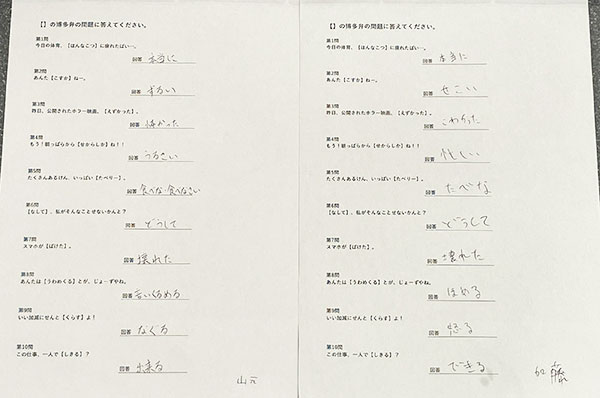 【】の博多弁の問題に答えてください。
第1問
今日の体育、【ほんなこつ】に疲れたばい…。
回答 本当に
第2問
あんた【こすか】ねー。
回答 ずるい
第3問
昨日、公開されたホラー映画、【えずかった】。
回答 怖かった
第4問
もう！朝っぱらから【せからしか】ね！！
回答 うるさい
第5問
たくさんあるけん、いっぱい【たべりー】。
回答 食べな・食べなさい
第6問
【なして】、私がそんなことせないかんと？
回答 どうして
第7問
スマホが【ばけた】。
回答 壊れた
第8問
あんたは【うわめくる】とが、じょーずやね。
回答 言いくるめる
第9問
いい加減にせんと【くらす】よ！
回答 なぐる
第10問
この仕事、一人で【しきる】？
回答 出来る
山元
【】の博多弁の問題に答えてください。
第1問
今日の体育、【ほんなこつ】に疲れたばい…。
回答 本当に
第2問
あんた【こすか】ねー。
回答 せこい
第3問
昨日、公開されたホラー映画、【えずかった】。
回答 こわかった
第4問
もう！朝っぱらから【せからしか】ね！！
回答 忙しい
第5問
たくさんあるけん、いっぱい【たべりー】。
回答 たべな
第6問
【なして】、私がそんなことせないかんと？
回答 どうして
第7問
スマホが【ばけた】。
回答 壊れた
第8問
あんたは【うわめくる】とが、じょーずやね。
回答 ほめる
第9問
いい加減にせんと【くらす】よ！
回答 怒る
第10問
この仕事、一人で【しきる】？
回答 できる
加藤